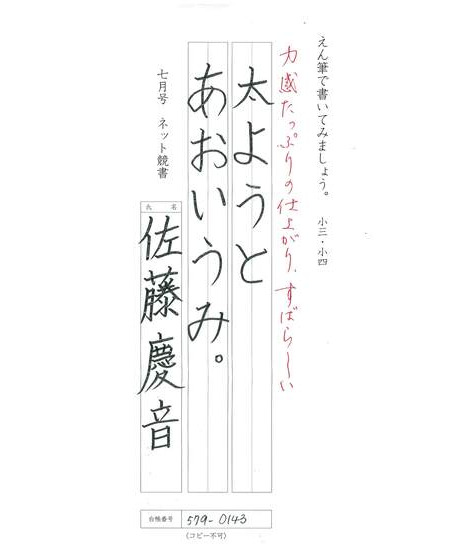 えん筆で書いてみましょう。　小三・小四
力感たっぷりの仕上がり、すばらしい
太ようと
あおいうみ。
七月号　ネット競書
氏名
佐藤慶音
台帳番号 579-0143
(コピー不可)